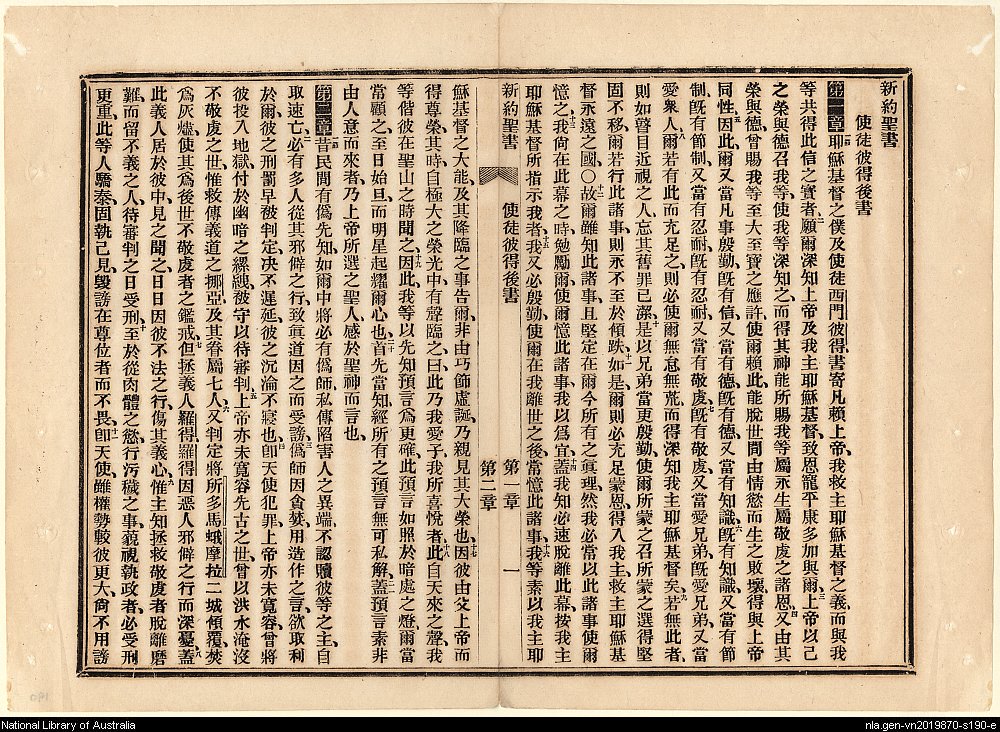 新約聖書
使徒彼得後書
第一章 耶穌基督之僕及使徒西門彼得書寄凡賴上帝我救主耶穌基督之義而與我
等共得此信之寶者願爾深知上帝及我主耶穌基督致恩寵平康多加與爾上帝以己
之榮與德召我等使我等深知之而得其神能所賜我等屬永生屬敬虔之諸恩又由其
榮與德曾賜我等至大至寶之應許使爾賴此能脫世間由情慾而生之敗壞得與上帝
同性因此爾又當凡事殷勤旣有信又當有德旣有德又當有知識旣有知識又當有節
制旣有節制又當有忍耐旣有忍耐又當有敬虔旣有敬虔又當愛兄弟旣愛兄弟又當
愛衆人爾若有此而充足之則必使爾無怠無荒而得深知我主耶穌基督矣若無此者
則如瞽目近視之人忘其舊罪已潔是以兄弟當更殷勤使爾所蒙之召所蒙之選得堅
固不移爾若行此諸事則永不至於傾跌如是爾則必充足蒙恩得入我主救主耶穌基
督永遠之國○故爾雖知此諸事且堅定在爾今所有之眞理然我必常以此諸事使爾
憶之我尙在此幕之時勉勵爾使爾憶此諸事我以爲宜蓋我知必速脫離此幕按我主
耶穌基督所指示我者我又必殷勤使爾在我離世之後常憶此諸事我等素以我主耶
新約聖書 使徒彼得後書 第一章 第二章 一
穌基督之大能及其降臨之事告爾非由巧飾虛誕乃親見其大榮也因彼由父上帝而
得尊榮其時自極大之榮光中有聲臨之曰此乃我愛子我所喜悅者此自天來之聲我
等偕彼在聖山之時聞之因此我等以先知預言爲更確此預言如照於暗處之燈爾當
常顧之至日始旦而明星起耀爾心也首先當知經所有之預言無可私解蓋預言素非
由人意而來者乃上帝所選之聖人感於聖神而言也
第二章 昔民間有僞先知如爾中將必有僞師私傳陷害人之異端不認贖彼等之主自
取速亡必有多人從其邪僻之行致眞道因之而受謗僞師因貪婪用造作之言欲取利
於爾彼之刑罰早被判定決不遲延彼之沉淪不寢也卽天使犯罪上帝亦未寬容曾將
彼投入地獄付於幽暗之縲絏被守以待審判上帝亦未寬容先古之世曾以洪水淹沒
不敬虔之世惟救傳義道之挪亞及其眷屬七人又判定將所多馬蛾摩拉二城傾覆焚
爲灰燼使其爲後世不敬虔者之鑑戒但拯義人羅得羅得因惡人邪僻之行而深憂蓋
此義人居於彼中見之聞之日日因彼不法之行傷其義心惟主知拯救敬虔者脫離磨
難而留不義之人待審判之日受刑至於從肉體之慾行污穢之事藐視執政者必受刑
更重此等人驕泰固執己見毀謗在尊位者而不畏卽天使雖權勢較彼更大尙不用謗
National Library of Australia
nla.gen-vn2019870-s190-e